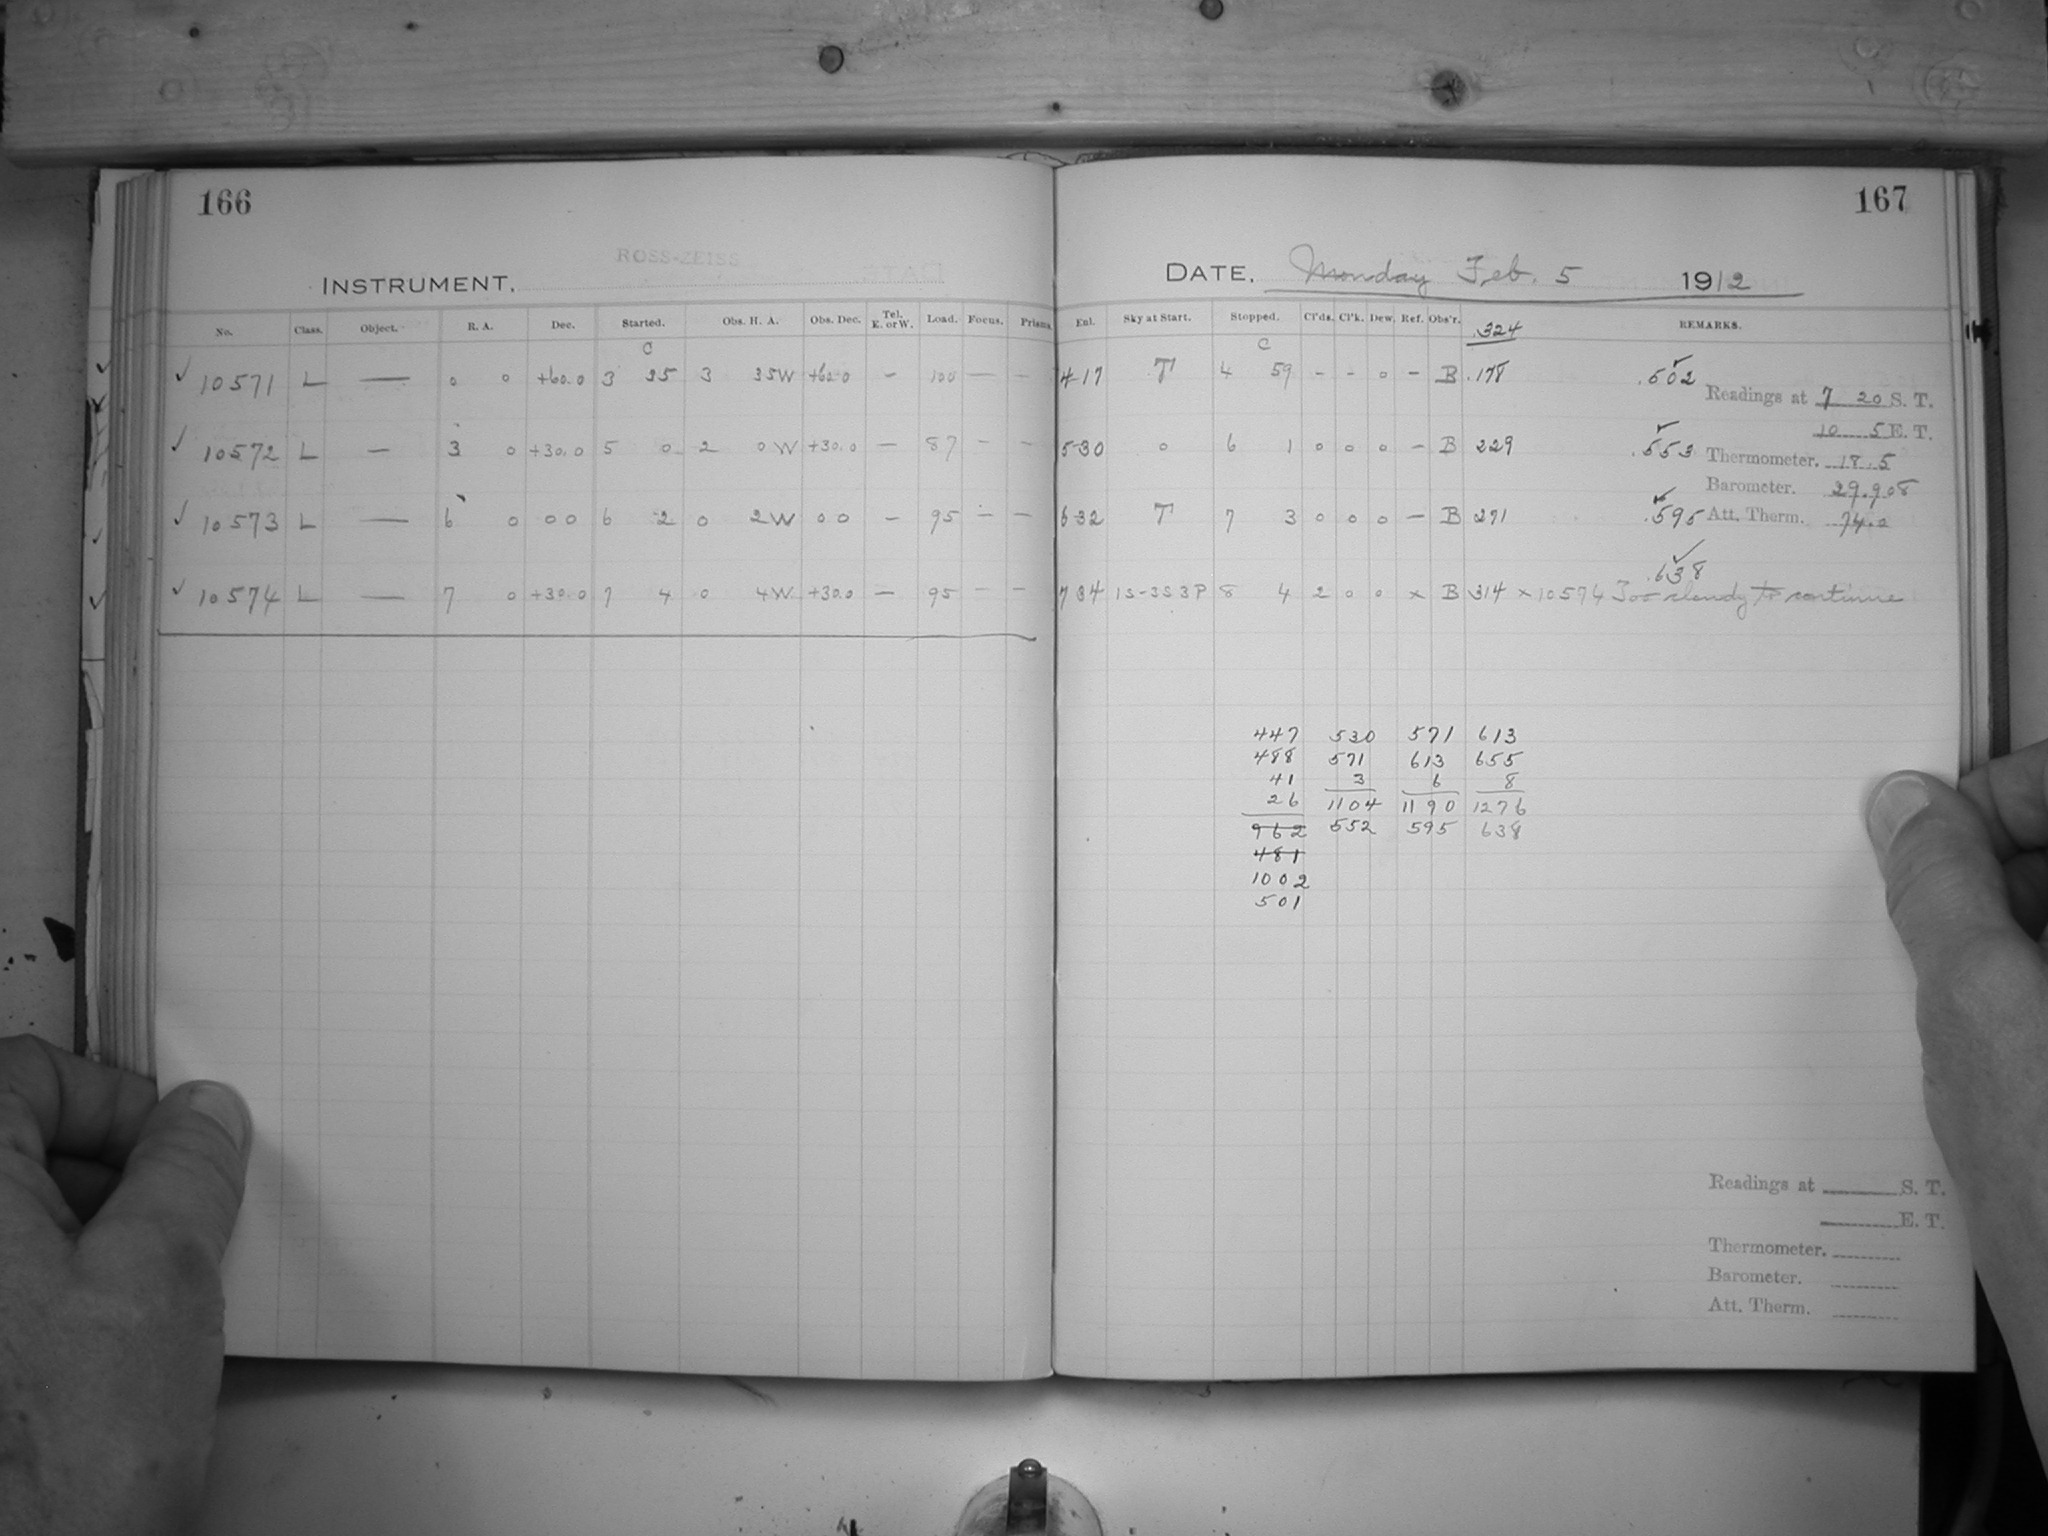 166
ROSS-ZEISS
INSTRUMENT.
No. Class. Object. R. A. Dec. Started. Obs. H. A. Obs. Dec. Tel. E. or W. Load. Focus. Prisms.
C
✓ 10571 L — 0 0 +60.0 3 35 3 35W +60.0 — 100 — —
✓ 10572 L — 3 0 +30.0 5 0 2 0W +30.0 — 87 — —
✓ 10573 L — 6 0 00 6 2 0 2W 00 — 95 — —
✓ 10574 L — 7 0 +30.0 7 4 0 4W +30.0 — 95 — —
167
DATE. Monday Feb. 5 1912
Enl. Sky at Start. Stopped. Cl'ds. Cl'k. Dew. Ref. Obs'r. .324 REMARKS.
C
417 T 4 59 - - 0 - B .178 .502
Readings at 7 20 S. T.
10 5 E. T.
530 0 6 1 0 0 0 - B 229 .553
Thermometer. 18.5
Barometer. 29.908
632 T 7 3 0 0 0 - B 271 .595
Att. Therm. 74.0
.638
734 1S-3S3P 8 4 2 0 0 x B 314 x 10574 Too cloudy to continue
447 530 571 613
488 571 613 655
41 3 6 8
26 1104 1190 1276
962 552 595 638
481
1002
501
Readings at S. T.
E. T.
Thermometer.
Barometer.
Att. Therm.